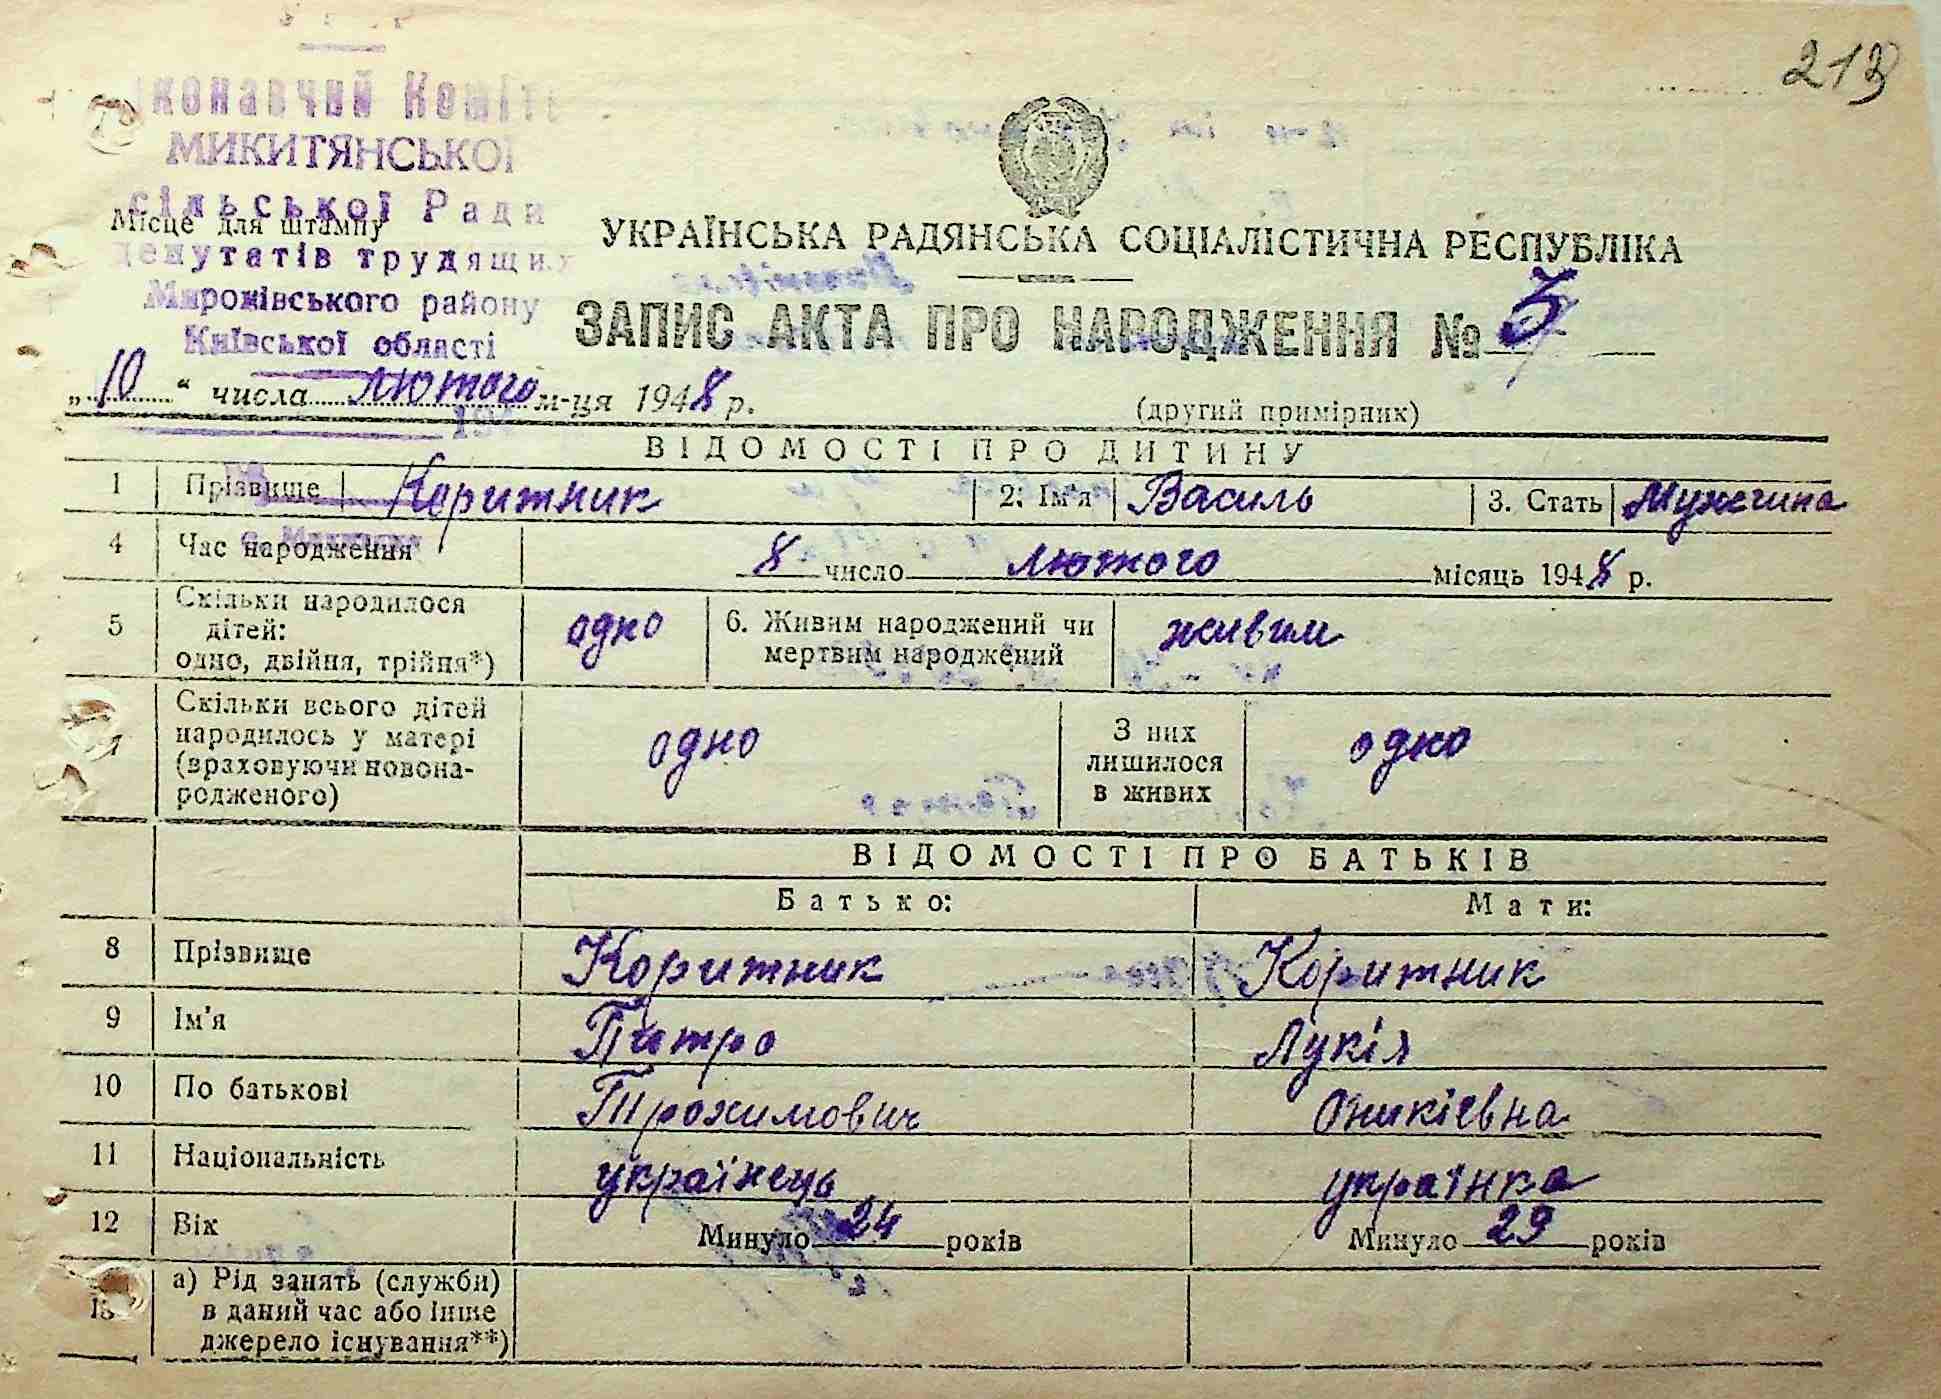 213
конавчий Коміт
МИКИТЯНСЬКОЇ
сільської Ради
Місце для штампу
депутатів трудящих
Миронівського району
Київської області
УКРАЇНСЬКА РАДЯНСЬКА СОЦІАЛІСТИЧНА РЕСПУБЛІКА
ЗАПИС АКТА ПРО НАРОДЖЕННЯ №
„10“ числа лютого м-ця 1948 р.
(другий примірник)
ВІДОМОСТІ ПРО ДИТИНУ
1 Прізвище Коритник 2. Ім'я Василь 3. Стать Мужчина
4 Час народження 8 число лютого місяць 1948 р.
5 Скільки народилося дітей: одно, двійня, трійня*) одно 6. Живим народжений чи мертвим народжений живим
7 Скільки всього дітей народилось у матері (враховуючи новона-родженого) одно З них лишилося в живих одно
ВІДОМОСТІ ПРО БАТЬКІВ
Батько: Мати:
8 Прізвище Коритник Коритник
9 Ім'я Питро Лукія
10 По батькові Трохимович Оникіевна
11 Національність українець українка
12 Вік Минуло 24 років Минуло 29 років
13 а) Рід занять (служби) в даний час або інше джерело існування**)